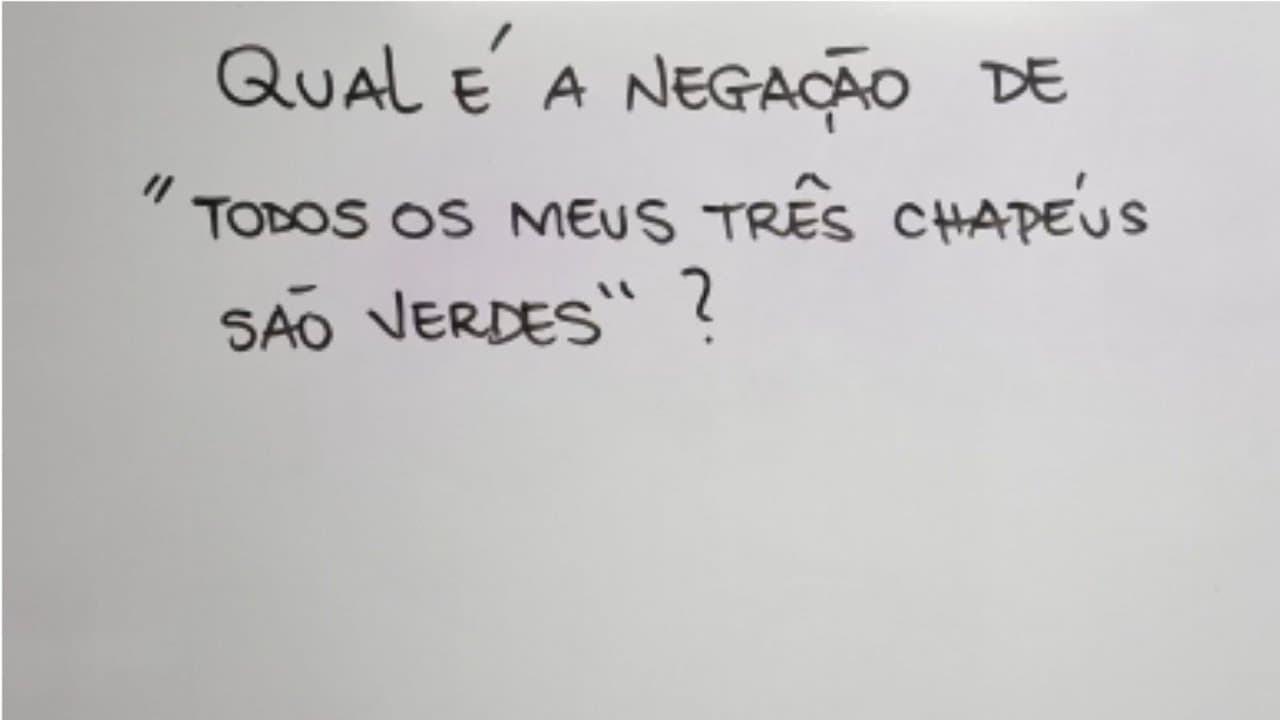 QUAL É A NEGAÇÃO DE
"TODOS OS MEUS TRÊS CHAPÉUS
SÃO VERDES"?